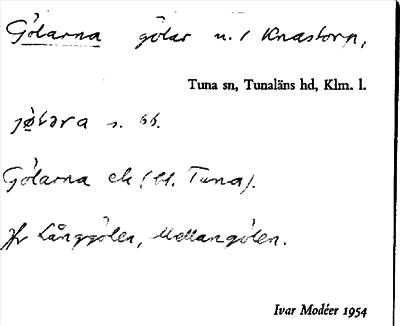 Gölarna gölar n. / Knastorp,
Tuna sn, Tunaläns hd, Klm. l.
s. bb.
Gölarna ek (bl. Tuna).
Jfr Långgölen, Mellangölen.
Ivar Modéer 1954